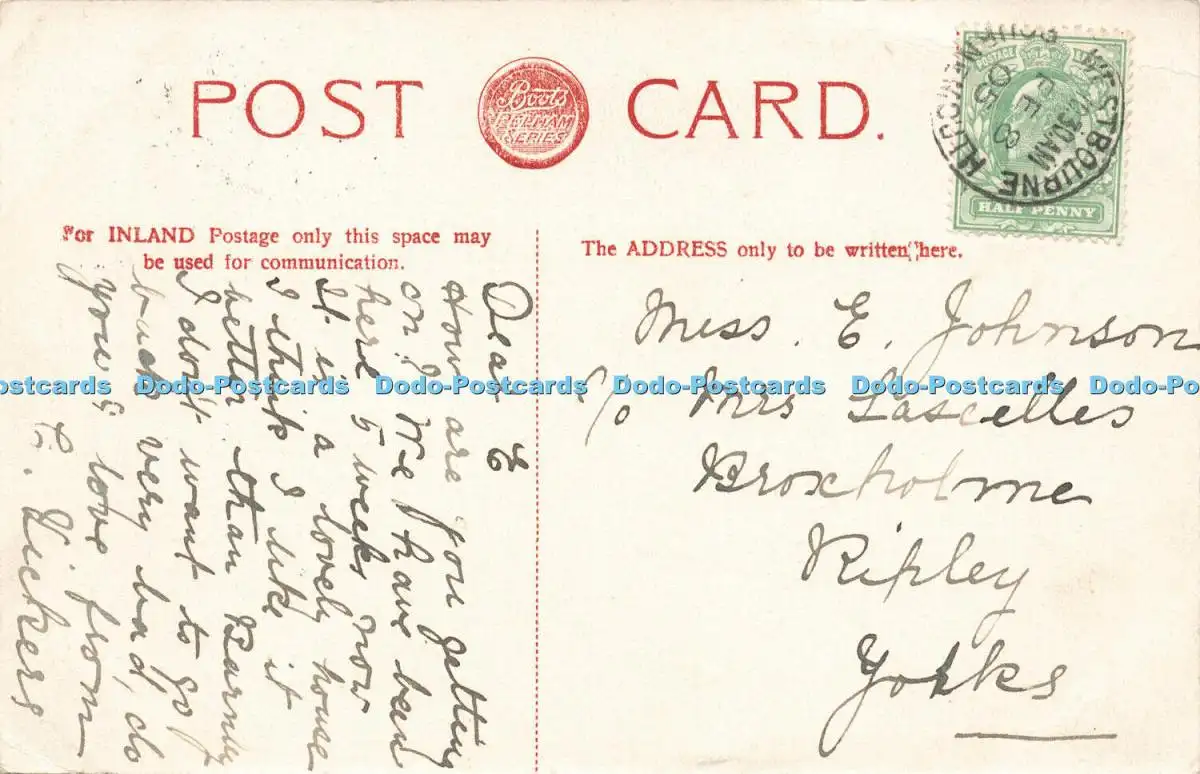 POST CARD.
Boots
PELHAM
SERIES
WESTBOURNE BOURNEMOUTH
30AM
FE 8
05
POSTAGE
HALF PENNY
For INLAND Postage only this space may
be used for communication.
The ADDRESS only to be written here.
Dear E
How are you getting
on? We have been
here 5 weeks now
It is a lovely house
I think I like it
better than Barnby
I don't want to go
back very bad, do
you? love from
E. Vickers
Miss. E. Johnson
c/o Mrs Lascelles
Broxholme
Ripley
Yorks
Dodo-Postcards Dodo-Postcards Dodo-Postcards Dodo-Postcards Dodo-Postcards